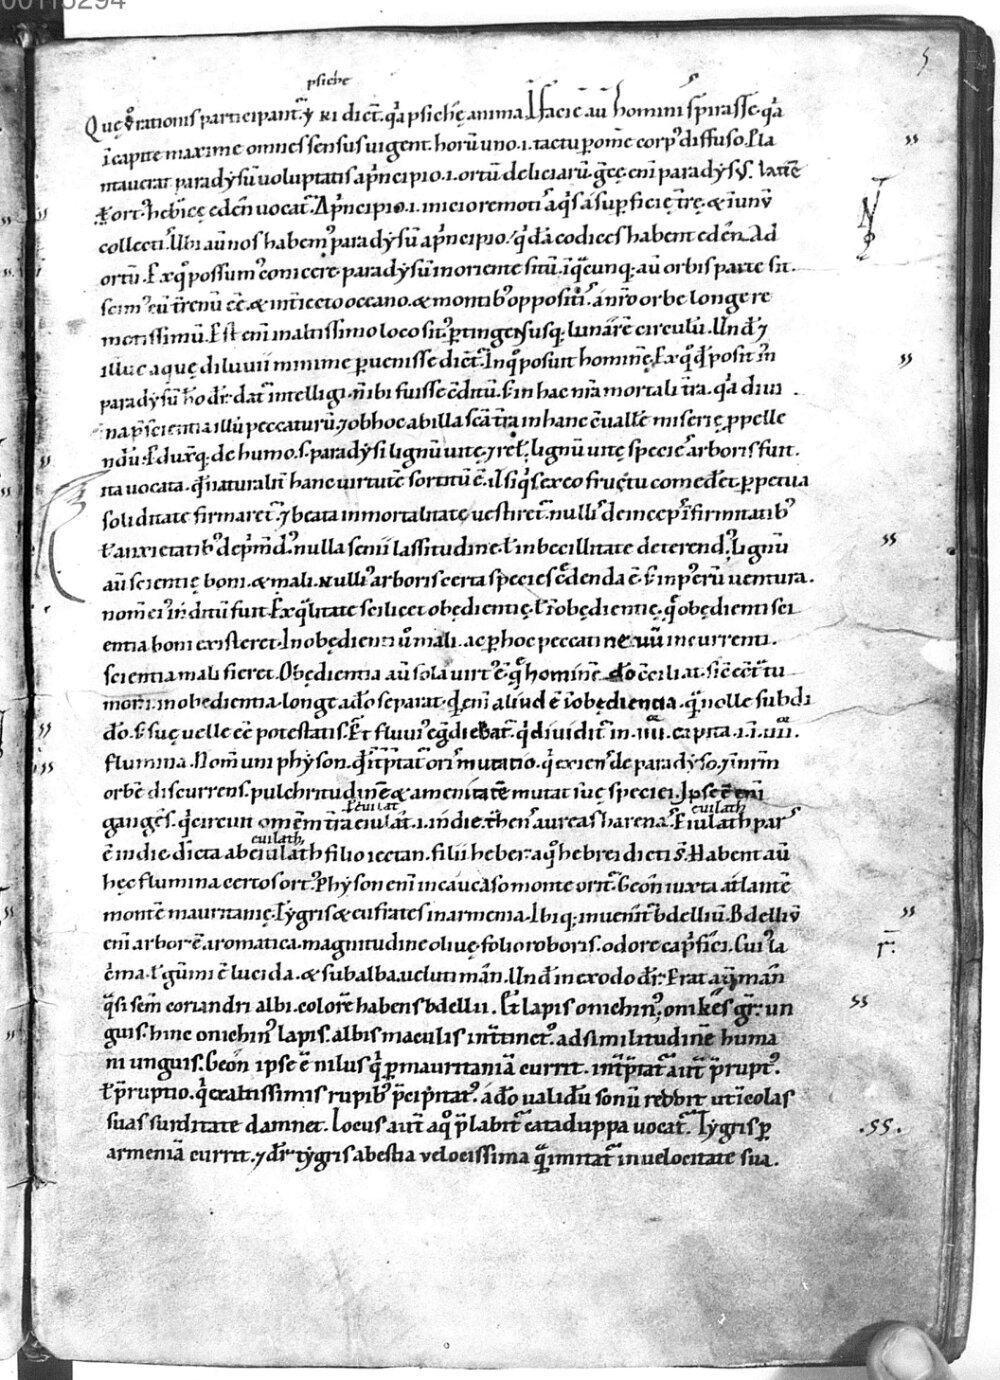 00113294
5
psiche
Quę rationis participant᷑ ⁊ ɴi dicit᷑ q̓a psichę anima. In facie aū homini spirasse. q̓a
in capite maxime omnes sensus uigent. horū uno .i. tactu p om̄e corp᷒ diffuso. Pla
ntauerat paradysū uoluptatis a p̓ncipio .i. ortū deliciarū. gr̄ęce enī paradysus. latine
ł ort᷒. hebraicę eden uocat᷑. A p̓ncipio .i. inicio remoti
collecti. Ubi aū nos habem᷒ paradysū a p̓ncipio. q̓dā codices habent eden. Ad
ortū. Ex quo possum᷒ conicere paradysū in oriente sitū. in q̓cunq; aū orbis parte sit.
scim᷒ eū t̄renū ee. & int̄iecto oceano. & montib᷒ oppositis. a nr̄o orbe longe re
motissimū. Est enī in altissimo loco sit᷒ p̱tingens usq; lunarē circulū. Unde ⁊
illuc aquę diluuii minime puenisse dicit᷑. In quo posuit hominē. Ex quo posit in
paradysū ho dr̄. dat᷑ intelligi. n ibi fuisse c̄ditū. s in hac nr̄a mortali tra. q̓a diui
na p̄scientia illū peccaturū. ⁊ ob hoc ab illa sc̄a tra in hanc cuallē miserię ppelle
ndū. Eduxitq; de humo .s. paradysi lignū uitę. ⁊ rel̄. lignū uitę species arboris fuit.
ita uocata. quod naturalit̄ hanc uirtutē sortitū ē. ut siq̓s ex eo fructu comedet᷑. perpetua
soliditate firmaret᷑. ⁊ beata inmortalitate uestiret᷑. nullis deincep̄s infirmitatib᷒
ł anxietatib᷒ dep̄mend᷒. nulla senii lassitudine. ł inbecillitate deterend᷒. Lignū
aū scientię boni. & mali. nulli᷒ arboris certa species credenda ē. s in p
nom̄ ei inditū fuit. Ex qualitate scilicet obędientię. ł inobędientię. quod obędienti sci
entia boni existeret. Inobędienti u᷑o mali. ac p hoc peccatineuū incurrenti.
scientia mali fieret. Obędientia aū sola uirt᷒ ē. q̄ hominē do conciliat. sic ecōtrario
morū. inobedientia. longe a do separat. qd enī aliud ē inobędientia. quā nolle subdi
do. s suę uelle ee potestatis. Et fluui᷒ egrediebat᷑. q̓ diuidit᷑ in .iiii. capita .i. in .iiii.
flumina. Nom̄ uni physon. q̓d intp̄tat᷑ oris mutatio. q̓ exiens de paradyso. ⁊ in nr̄m
orbē discurrens. pulchritudinē & amenitatē mutat suę speciei. Ipse ē enī
ł euilat euilath
ganges. q̓ circuit omnem tra eiulat .i. indię. habens aureas harenas. Eiulath pars
euilath.
ē indię. dicta ab eiulath filio iectan. filii heber. a quo hebrei dicti s̄. Habent aū
hęc flumina certos ort᷒. Physon enī in caucaso monte orit᷑. Geon iuxta atlante
montē mauritanię. Tygris & eufrates in armenia. Ibiq; inuenit᷑ bdelliū. Bdelliū
enī arbor ē aromatica. magnitudine oliuę. folio roboris. odore cap̄fici. Cuius la
crima. ł gūmi ē lucida. & subalba. ueluti man̄. Unde in exodo dr̄. Erat aū man̄
q̓si sem̄ coriandri albi. colorē habens bdellii. Et lapis onichin᷒. onikēs gr. un
guis. hinc onichin᷒ lapis. albis maculis intinct᷒. ad similitudinē huma
ni unguis. Geon ipse ē nilus q̓ p mauritaniā currit. intp̄tat᷑ aut p̄rupt᷒.
ł p̄ruptio. q̓ exaltissimis rupib᷒ p̄cipitat᷑. ado ualidū sonū reddit ut incolas
suas surditate damnet. Locus aut a quo plabit᷑ cataduppa uocat᷑. Tygris p
armeniā currit. ⁊ dr̄ tygris a bestia uelocissima quā imitat᷑ in uelocitate sua.
r̄.
.ss.